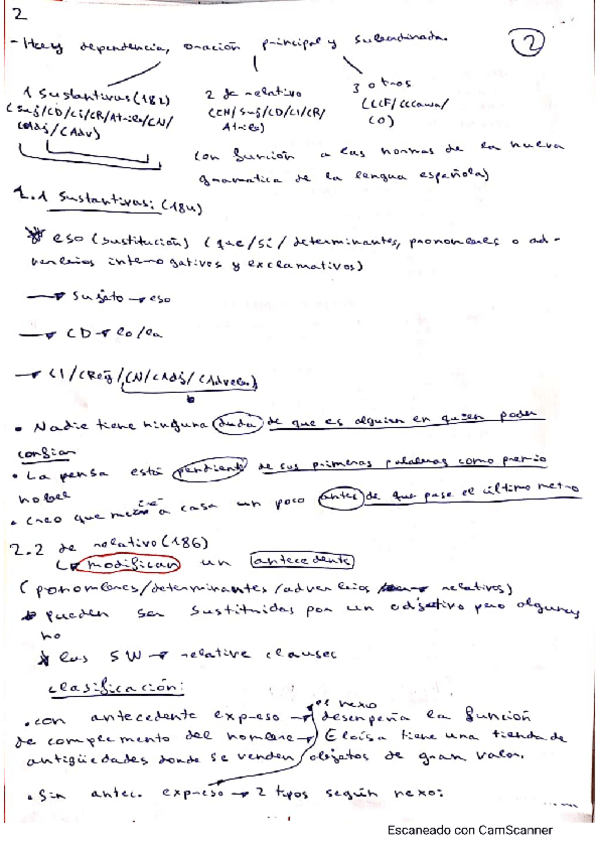 2
- Hay dependencia, oración principal y subordinada. 2
1 sustantivas (182) 2 de relativo 3 otras
(Suj/CD/CI/CR/Atrib/CN/ (CN/Suj/CD/CI/CR/ (CCF/CCCausa/
CAdj/CAdv) Atrib) CO)
Con función a las normas de la nueva
gramatica de la lengua española)
2.1 Sustantivas: (184)
eso (sustitución) (que/si/determinantes, pronombres o ad-
verbios interrogativos y exclamativos)
→ Sujeto → eso
→ CD → lo/la
→ CI/CReg/CN/CAdj/CAdverb.)
• Nadie tiene ninguna duda de que es alguien en quien poder
confiar
• La pensa está pendiente de sus primeras palabras como premio
nobel
• Creo que me iré a casa un poco antes de que pase el último metro
2.2 de relativo (186)
modifican un antecedente
(ponombres/determinantes/adverbios relativos)
pueden ser sustituidas por un adjetivo pero algunas
no
las SW → relative clauses
clasificación:
el nexo
• con antecedente expreso → desenpeña la función
de complemento del nombre → Eloísa tiene una tienda de
antigüedades donde se venden objetos de gran valor.
• Sin antec. expreso → 2 tipos según nexo:
Escaneado con CamScanner